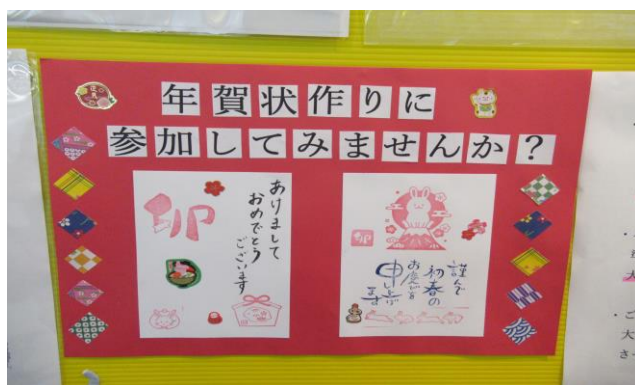 年賀状作りに
参加してみませんか?
卯
あけまして
おめでとう
ございます
卯
謹んで
初春の
お慶びを
申し上げ
ます